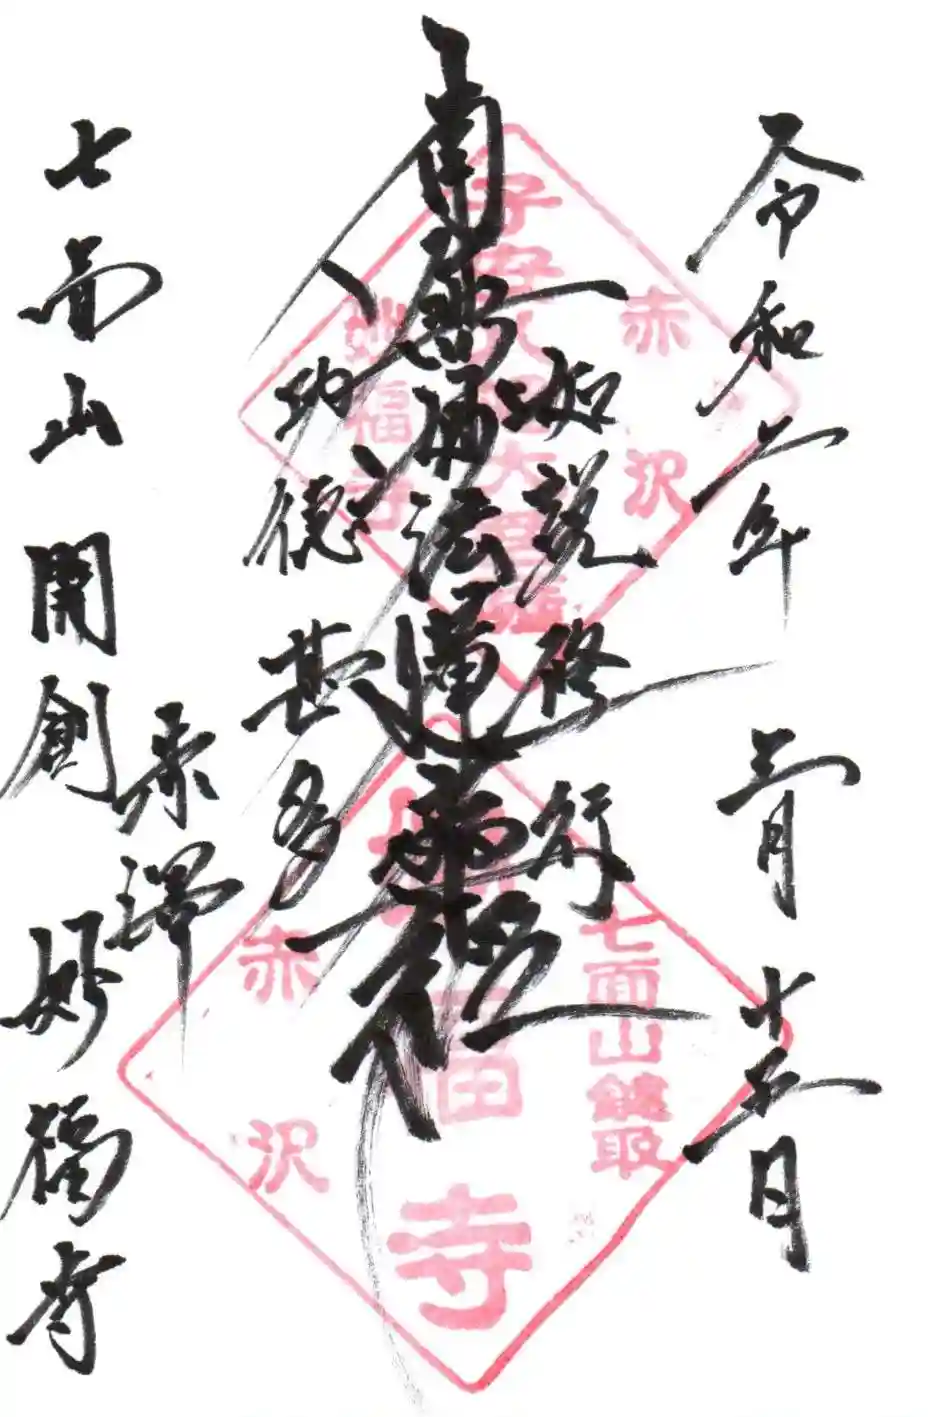 令和二年 三月 十五日
如説修行
南無妙法蓮華経
功徳甚多
七面山 開創
妙福寺
赤沢
妙福寺
赤沢
七面山鎰取
妙福寺